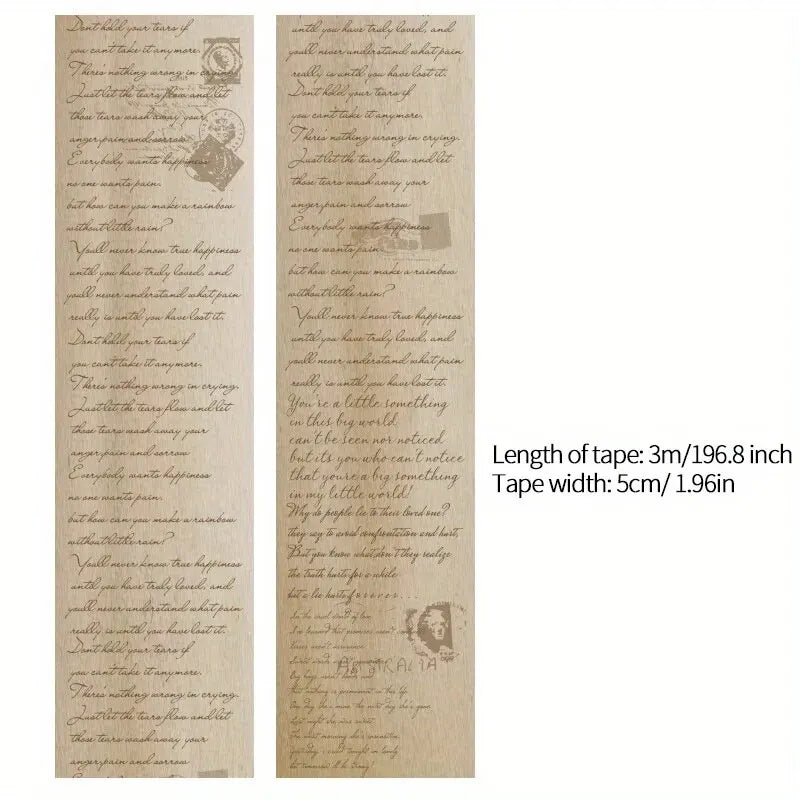 Dont hold your tears if
you cant take it anymore.
There's nothing wrong in crying.
Just let the tears flow and let
those tears wash away your
anger,pain and sorrow
Everybody wants happiness
no one wants pain.
but how can you make a rainbow
without little rain?
You'll never know true happiness
until you have truly loved, and
you'll never understand what pain
really is until you have lost it.
Dont hold your tears if
you cant take it anymore.
There's nothing wrong in crying.
Just let the tears flow and let
those tears wash away your
anger,pain and sorrow
Everybody wants happiness
no one wants pain.
but how can you make a rainbow
without little rain?
You'll never know true happiness
until you have truly loved, and
you'll never understand what pain
really is until you have lost it.
Dont hold your tears if
you cant take it anymore.
There's nothing wrong in crying.
Just let the tears flow and let
those tears wash away your
anger,pain and sorrow
until you have truly loved, and
you'll never understand what pain
really is until you have lost it.
Dont hold your tears if
you cant take it anymore.
There's nothing wrong in crying.
Just let the tears flow and let
those tears wash away your
anger,pain and sorrow
Everybody wants happiness
no one wants pain.
but how can you make a rainbow
without little rain?
You'll never know true happiness
until you have truly loved, and
you'll never understand what pain
really is until you have lost it.
You're a little something
in this big world
can't be seen nor noticed
but its you who can't notice
that you're a big something
in my little world!
Why do people lie to their loved one?
they say to avoid confrontation and hurt,
But you know what don't they realize
the truth hurts for a while
but a lie hurts forever...
I've learned that promises aren't
AUSTRALIA
that nothing is permanent in this life
One day she's mine the next day she's gone
Last night she was sweet
Length of tape: 3m/196.8 inch
Tape width: 5cm/ 1.96in